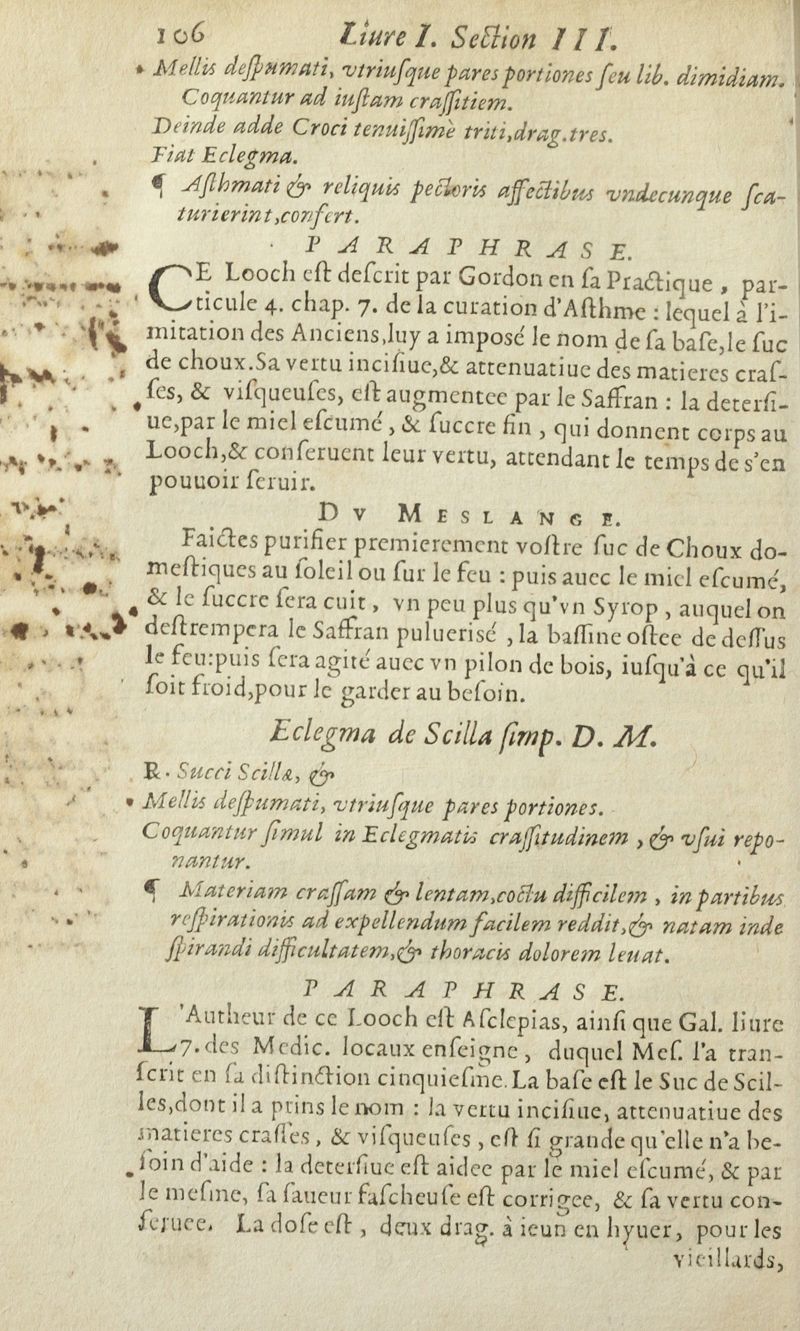 106 Liure I. Section III.
Mellis deſpumati, vtriuſque pares portiones ſeu lib. dimidiam.
Coquantur ad iuſtam craſſitiem.
Deinde adde Croci tenuiſſimè triti,drag.tres.
Fiat Eclegma.
¶ Aſthmati & reliquis pectoris affectibus vndecunque ſca-
turierint,confert.
PARAPHRASE.
CE Looch eſt deſcrit par Gordon en ſa Practique , par-
ticule 4. chap. 7. de la curation d'Aſthme : lequel à l'i-
mitation des Anciens,luy a imposé le nom de ſa baſe,le ſuc
de choux.Sa vertu inciſiue,& attenuatiue des matieres craſ-
ſes, & viſqueuſes, eſt augmentee par le Saffran : la deterſi-
ue,par le miel eſcumé , & ſuccre fin , qui donnent corps au
Looch,& conſeruent leur vertu, attendant le temps de s'en
pouuoir ſeruir.
DV MESLANGE.
Faictes purifier premierement voſtre ſuc de Choux do-
meſtiques au ſoleil ou ſur le feu : puis auec le miel eſcumé,
& le ſuccre ſera cuit , vn peu plus qu'vn Syrop , auquel on
deſtrempera le Saffran puluerisé , la baſſine oſtee de deſſus
le feu:puis ſera agité auec vn pilon de bois, iuſqu'à ce qu'il
ſoit froid,pour le garder au beſoin.
Eclegma de Scilla ſimp. D. M.
R. Succi Scillæ, &
Mellis deſpumati, vtriuſque pares portiones.
Coquantur ſimul in Eclegmatis craſſitudinem , & vſui repo-
nantur.
¶ Materiam craſſam & lentam,coctu difficilem , in partibus
reſpirationis ad expellendum facilem reddit,& natam inde
ſpirandi difficultatem,& thoracis dolorem leuat.
PARAPHRASE.
L'Autheur de ce Looch eſt Aſclepias, ainſi que Gal. liure
7.des Medic. locaux enſeigne , duquel Meſ. l'a tran-
ſcrit en ſa diſtinction cinquieſme.La baſe eſt le Suc de Scil-
les,dont il a prins le nom : la vertu inciſiue, attenuatiue des
matieres craſſes , & viſqueuſes , eſt ſi grande qu'elle n'a be-
ſoin d'aide : la deterſiue eſt aidee par le miel eſcumé, & par
le meſme, ſa ſaueur faſcheuſe eſt corrigee, & ſa vertu con-
ſeruee. La doſe eſt , deux drag. à ieun en hyuer, pour les
vieillards,